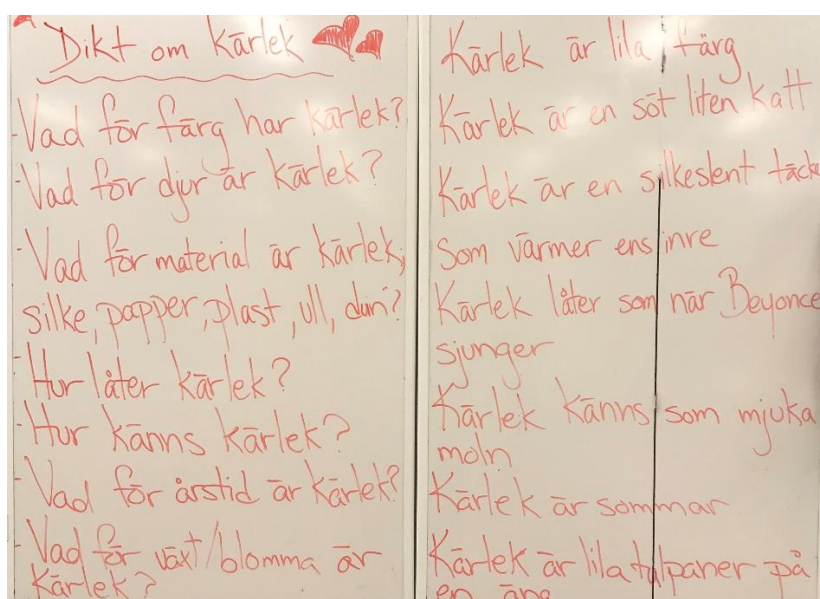 Dikt om kärlek
-Vad för färg har kärlek?
-Vad för djur är kärlek?
-Vad för material är kärlek,
silke, papper, plast, ull, dun?
-Hur låter kärlek?
-Hur känns kärlek?
-Vad för årstid är kärlek?
-Vad för växt/blomma är
kärlek?
Kärlek är lila färg
Kärlek är en söt liten katt
Kärlek är en silkeslent täcke
som värmer ens inre
Kärlek låter som när Beyonce
sjunger
Kärlek känns som mjuka
moln
Kärlek är sommar
Kärlek är lila tulpaner på
en äng